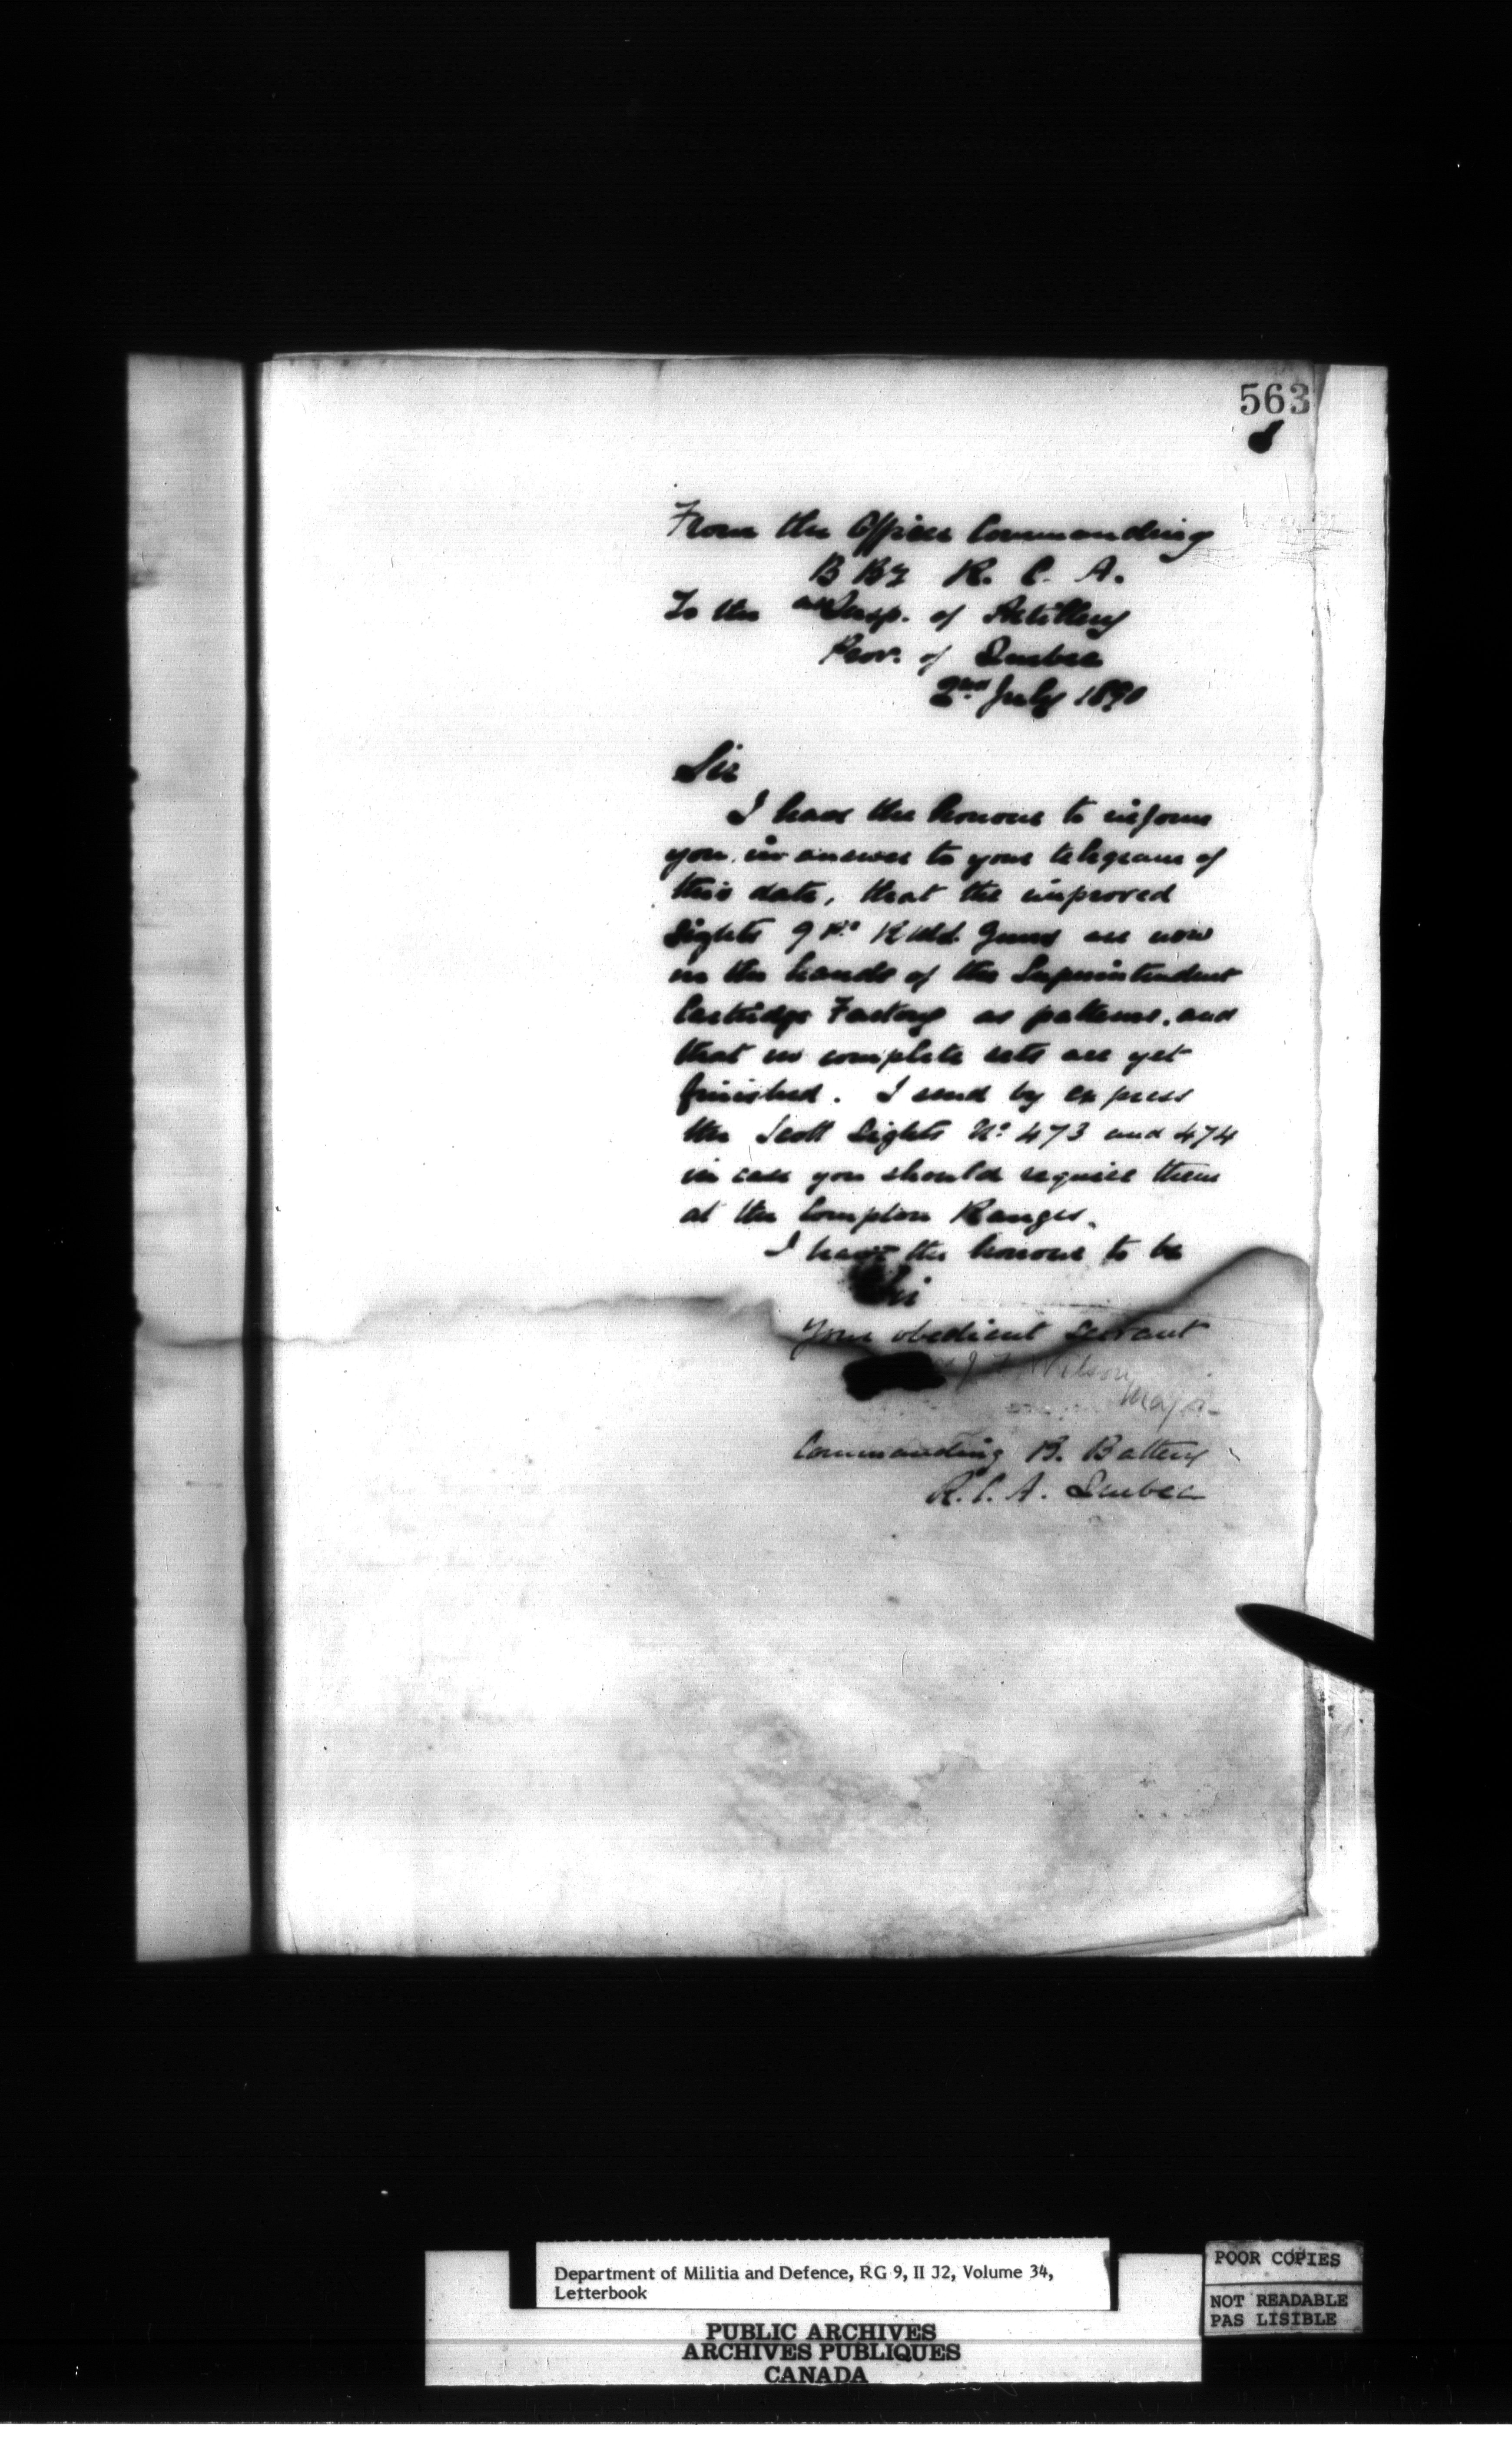 563
From the Officer Commanding
B By R. C. A.
To the Insp. of Artillery
Prov. of Quebec
2nd July 1890
Sir
I have the honour to inform
you in answer to your telegram of
this date, that the improved
Sights 9 Pr Guns are now
in the hands of the Superintendent
Cartridge Factory as patterns, and
that no complete sets are yet
finished. I send by express
the Scott Sights No 473 and 474
in case you should require them
at the Compton Ranges.
I have the honour to be
Sir
Your obedient Servant
Wilson
Major
Commanding B. Battery
R. C. A. Quebec
Department of Militia and Defence, RG 9, II J2, Volume 34,
Letterbook
PUBLIC ARCHIVES
ARCHIVES PUBLIQUES
CANADA
POOR COPIES
NOT READABLE
PAS LISIBLE